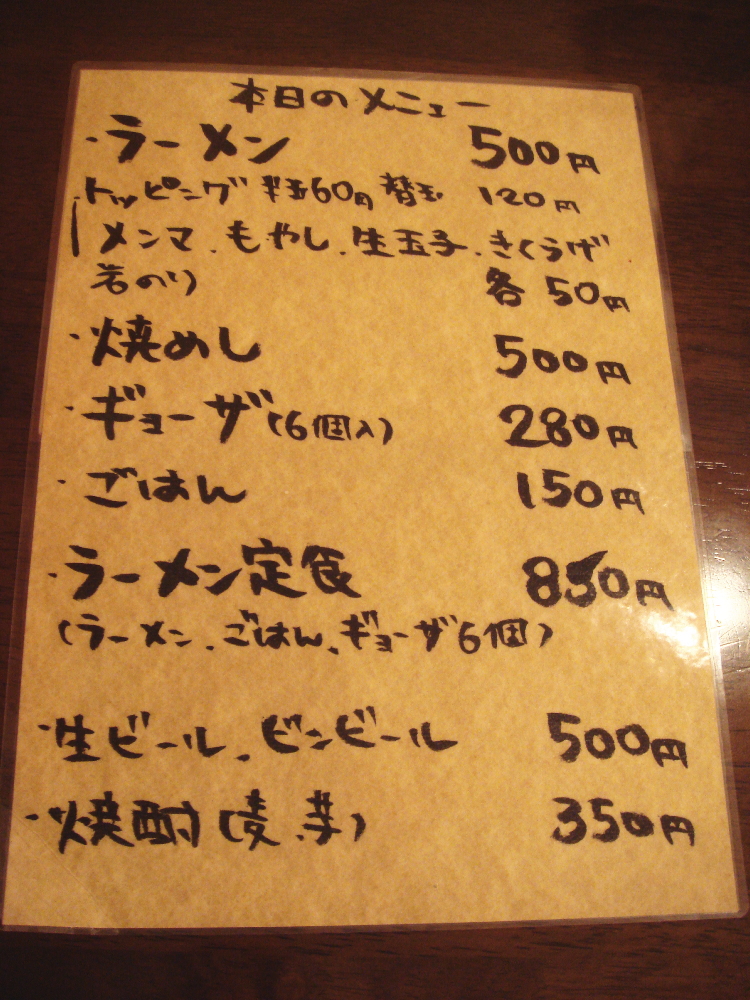 本日のメニュー
・ラーメン 500円
トッピング 半玉60円 替玉 120円
メンマ、もやし、生玉子、きくらげ
岩のり 各 50円
・焼めし 500円
・ギョーザ(6個入) 280円
・ごはん 150円
・ラーメン定食 850円
(ラーメン、ごはん、ギョーザ6個)
・生ビール、ビンビール 500円
・焼酎(麦、芋) 350円